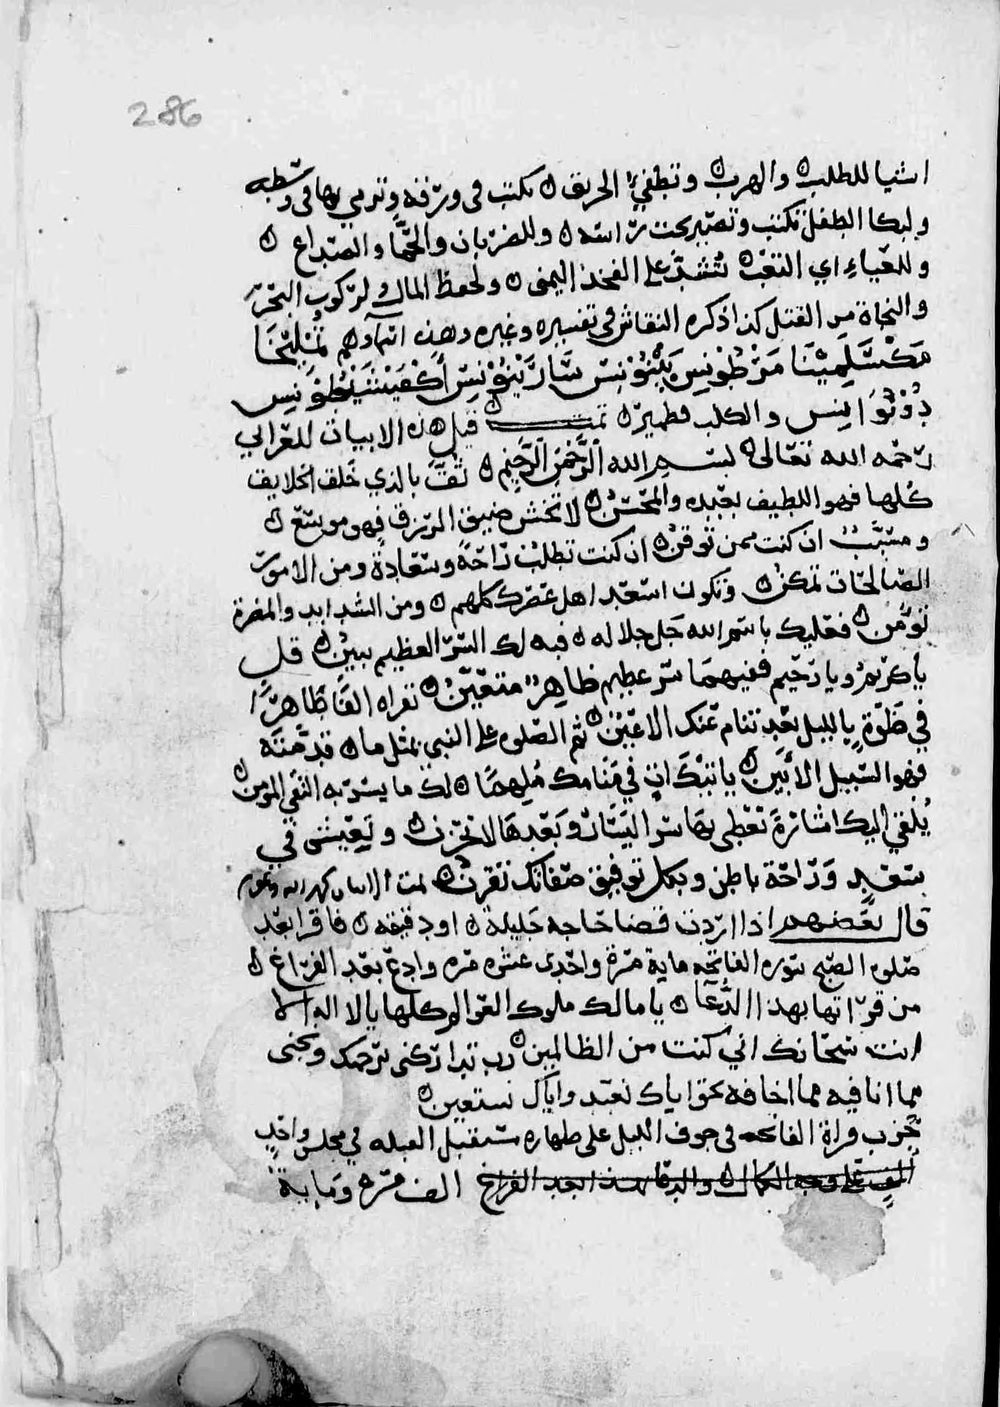 286
اشيا للطلب والهرب وتطفيء الحريق تكتب في ورقة وترمي بها في وسطه
ولبكا الطفل تكتب وتصير تحت راسه وللضربان والحما والصداع
وللعياء اي التعب تشد على الفخذ اليمنى ولحفظ المال ولركوب البحر
والنجاة من القتل كذا ذكره النقاش في تفسيره وغيره وهذه اسماوهم تمليخا
مكسلمينا مرطونس بينونس سارينونس اكفيشنيطونس
ذونوانس والكلب قطمير تمت قيل هذه الابيات للغزالي
رحمه الله تعالى بسم الله الرحمن الرحيم ثق بالذي خلق الخلايق
كلها فهو اللطيف بعبده والمحسن لا تخش ضيق الرزق فهو موسع
ومسبب ان كنت ممن توقن ان كنت تطلب راحة وسعادة ومن الامور
الصالحات تمكن وتكون اسعد اهل عصرك كلهم ومن الشدايد والمضرة
تومن فعليك باسم الله جل جلاله فبه لك السر العظيم يبين قل
يا كريم ويا رحيم ففيهما سر عظيم ظاهر متعين تقراه الفا ظاهرا
في خلوة بالليل بعد تنام عنك الاعين ثم الصلوه على النبي بمثل ما قدمته
فهو السبيل الابين ياتيك ات في منامك ملهما لك ما يسر به التقي المومن
يلقي اليك اشارة تعطى بها سر اليسار وبعدها لا تحزن وتعيش في
سعد وراحة باطن وبكل توفيق صفاتك تقرن تمت الابيات
قال بعضهم اذا اردت قضا حاجه جليلة او دقيقه فاقرا بعد
صلوه الصبح سوره الفاتحه ماية مرة واحدى عشره مره وادع بعد الفراغ
من قراتها بهذا الدعا يا مالك ملوك العوالم كلها يا لا اله الا
انت سبحانك اني كنت من الظالمين رب تداركني برحمتك ونجني
مما انا فيه مما اخافه بحق اياك نعبد واياك نستعين
جرب قراة الفاتحه في جوف الليل على طهاره مستقبل القبله في مجلس واحد
الف على وجه الكمال والدعا بهذا بعد الفراغ الف مره وماية